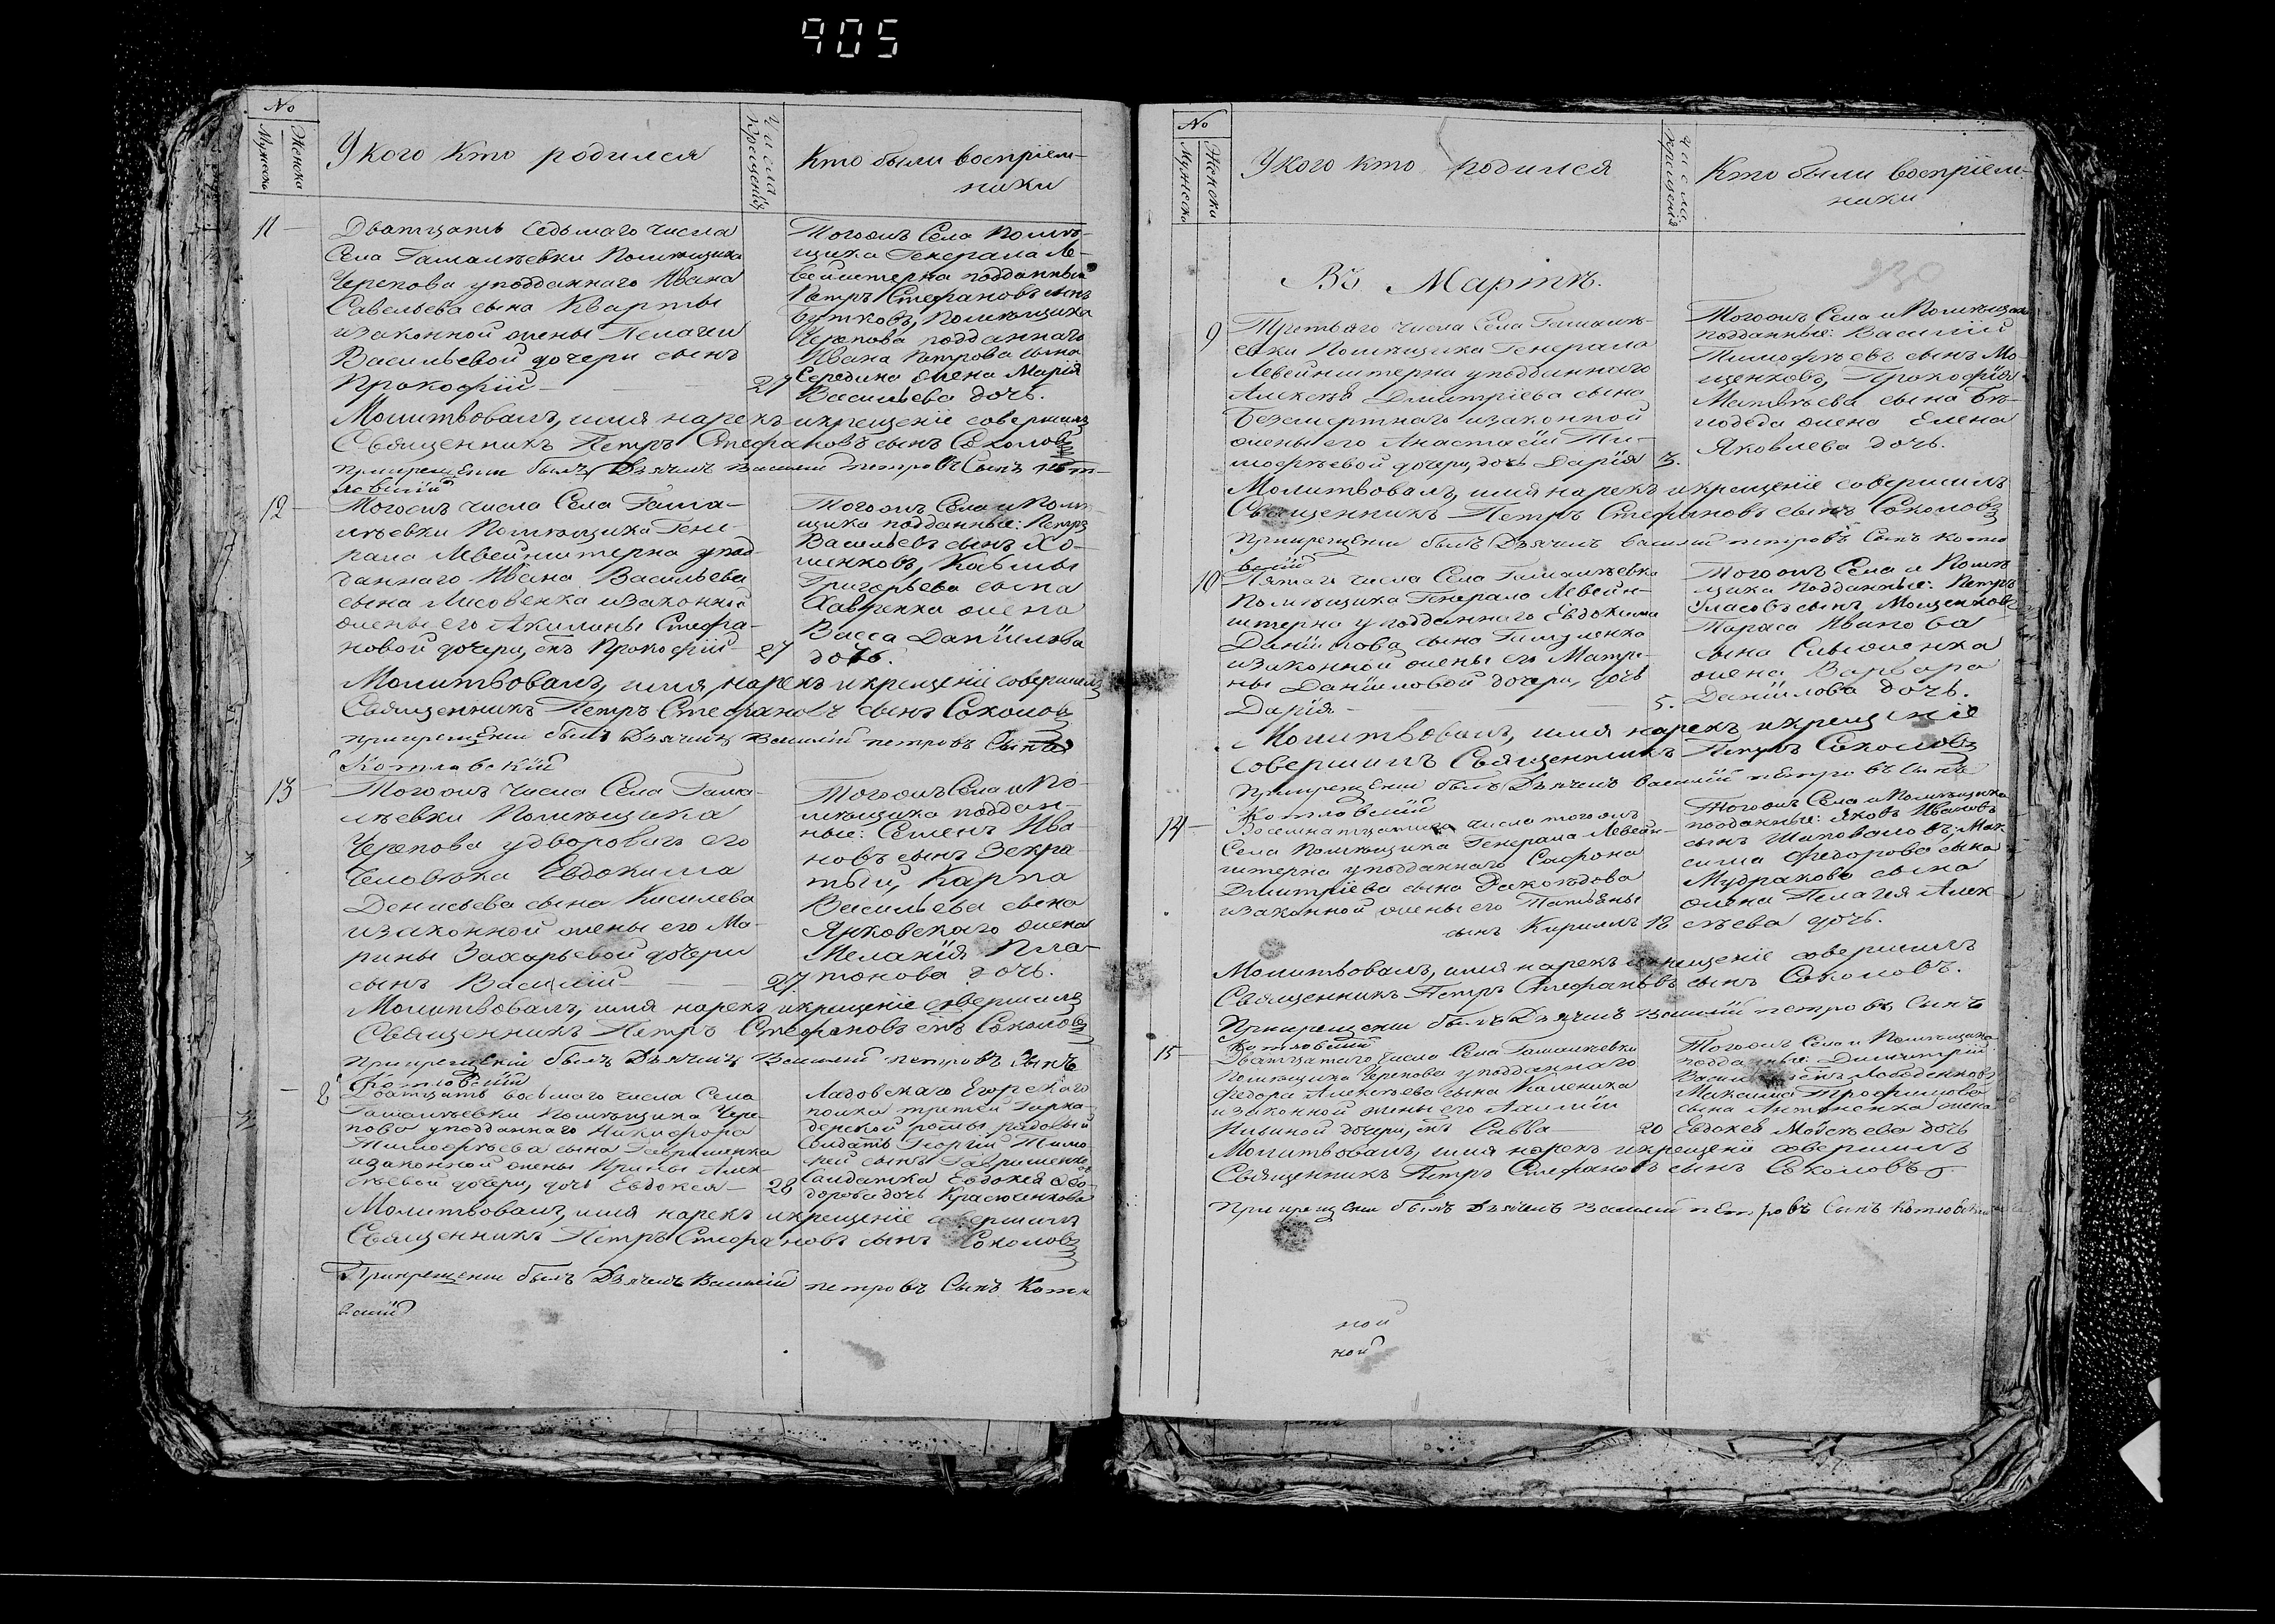 905
No
Мужеска Женска
У кого кто родился
Числа Крещенія
Кто были воспріем-
ники
11
Дватцать седьмаго числа
Села Гамалѣевки Помѣщика
Черепова у подданнаго Ивана
Савельева сына Кварты
и законной жены Пелагеи
Васильевой дочери сынъ
Прокофій 27
Тогожъ Села Помѣ-
щика Генерала Ле-
подданный
Петръ Стефановъ сынъ
Помѣщика
Черепова подданнаго
Ивана Петрова сына
Середина жена Марія
Васильева дочь.
Молитвовалъ, имя нарекъ и крещеніе совершилъ
Священникъ Петръ Стефановъ сынъ Соколовъ
При крещеніи былъ Дьячекъ Василій петровъ Сынъ Кот-
ловскій
12
Тогожъ числа Села Гама-
лѣевки Помѣщика Гене-
рала Левейнштерна у под-
даннаго Ивана Васильева
сына Лисовенка и законной
жены его Акилины Стефа-
новой дочери, снъ Прокофій 27
Тогожъ Села и Помѣ
щика подданные: Петръ
Васильевъ сынъ Хо-
менковъ, Козьмы
Григорьева сына
Хавренка жена
Васса Даніилова
дочь.
Молитвовалъ, имя нарекъ и крещеніе совершилъ
Священникъ Петръ Стефановъ сынъ Соколовъ
При крещеніи былъ Дьячекъ Василій петровъ Сынъ
Котловскій
13
Тогожъ числа Села Гама-
лѣевки Помѣщика
Черепова у дворовагъ его
Человѣка Евдокима
Денисьева сына Киселева
и законной жены его Ма-
рины Захарьевой дочери
сынъ Василій 27.
Тогожъ Села и По-
мѣщика поддан-
ные: Семенъ Ива-
новъ сынъ Зекра-
тый, Карпа
Васильева сына
Янковскаго жена
Меланія Пла-
тонова дочь.
Молитвовалъ, имя нарекъ и крещеніе совершилъ
Священникъ Петръ Стефановъ снъ Соколовъ
При крещеніи былъ Дьячекъ Василій петровъ Сынъ
Котловскій
8
Дватцать восьмаго числа Села
Гамалѣевки Помѣщика Чере-
пова у подданнаго Никифора
Тимофѣева сына Гавриленка
и законной жены Ирины Алек-
сѣевой дочери, дочь Евдокея 28
Ладовскаго Егорского
полка третей Грена-
дерской роты рядовый
Солдатъ Георгій Тимо
фей сынъ Гавриленко
Салдатка Евдокея Фео-
дорова дочь Красюченкова
Молитвовалъ, имя нарекъ и крещеніе совершилъ
Священникъ Петръ Стефановъ сынъ Соколовъ
При крещеніи былъ Дьячекъ Василій петровъ Сынъ Котло
вскій
No
Мужеска Женска
У кого кто родился
Числа крещенія
Кто были воспріем-
ники
930
Въ Мартѣ.
9
Третьяго числа Села Гамалѣ-
евки Помѣщика Генерала
Левейнштерна у подданнаго
Алексѣя Дмитріева сына
Безсмертнаго и законной
жены его Анастасіи Ти-
мофѣевой дочери, дочь Дарія 3.
Тогожъ Села и Помѣщика
подданные: Василій
Тимофѣевъ сынъ Мо-
щенковъ, Прокофія
Матвѣева сына Бѣ-
лодеда жена Елена
Яковлева дочь.
Молитвовалъ, имя нарекъ и крещеніе совершилъ
Священникъ Петръ Стефановъ сынъ Соколовъ
При крещеніи былъ Дьячекъ Василій петровъ Сынъ Котло
вскій
10
Пятаго числа Села Гамалѣевки
Помѣщика Генерала Левейн-
штерна у подданнаго Евдокима
Даніилова сына
и законной жены его Матре-
ны Даніиловой дочери, дочь
Дарія 5.
Тогожъ Села и Помѣ
щика Подданные: Петръ
Уласовъ сынъ Мощенковъ
Тараса Иванова
сына
жена Варвара
Даніилова дочь.
Молитвовалъ, имя нарекъ и крещеніе
совершилъ Священникъ Петръ Соколовъ
При крещеніи былъ Дьячекъ Василій петровъ Сынъ
Котловскій
14
Восемнатцатаго числа тогожъ
Села Помѣщика Генерала Левейн-
штерна у подданнаго Сафона
Дмитріева сына Дакоѣдова
и законной жены его Татьяны
сынъ Кирилъ 18
Тогожъ Села и Помѣщика
подданные: Яковъ Ивановъ
сынъ Шаповаловъ, Мак
сима Федорова сына
Мудракова сына
жена Пелагея Алек
сѣева дочь.
Молитвовалъ, имя нарекъ и крещеніе совершилъ
Священникъ Петръ Стефановъ сынъ Соколовъ.
При крещеніи былъ Дьячекъ Василій петровъ Сынъ
Котловскій
15
Дватцатаго числа Села Гамалѣевки
Помѣщика Черепова у подданнаго
Федора Алексѣева сына Каленика
и законной жены его
Ильиной дочери, снъ Савва 20
Тогожъ Села и Помѣщика
подданные: Димитрій
Лободенковъ
Максима Трофимова
сына Антоненка жена
Евдокея Мойсѣева дочь
Молитвовалъ, имя нарекъ и крещеніе совершилъ
Священникъ Петръ Стефановъ сынъ Соколовъ
При крещеніи былъ Дьячекъ Василій петровъ Сынъ Котловскій
ной
ной